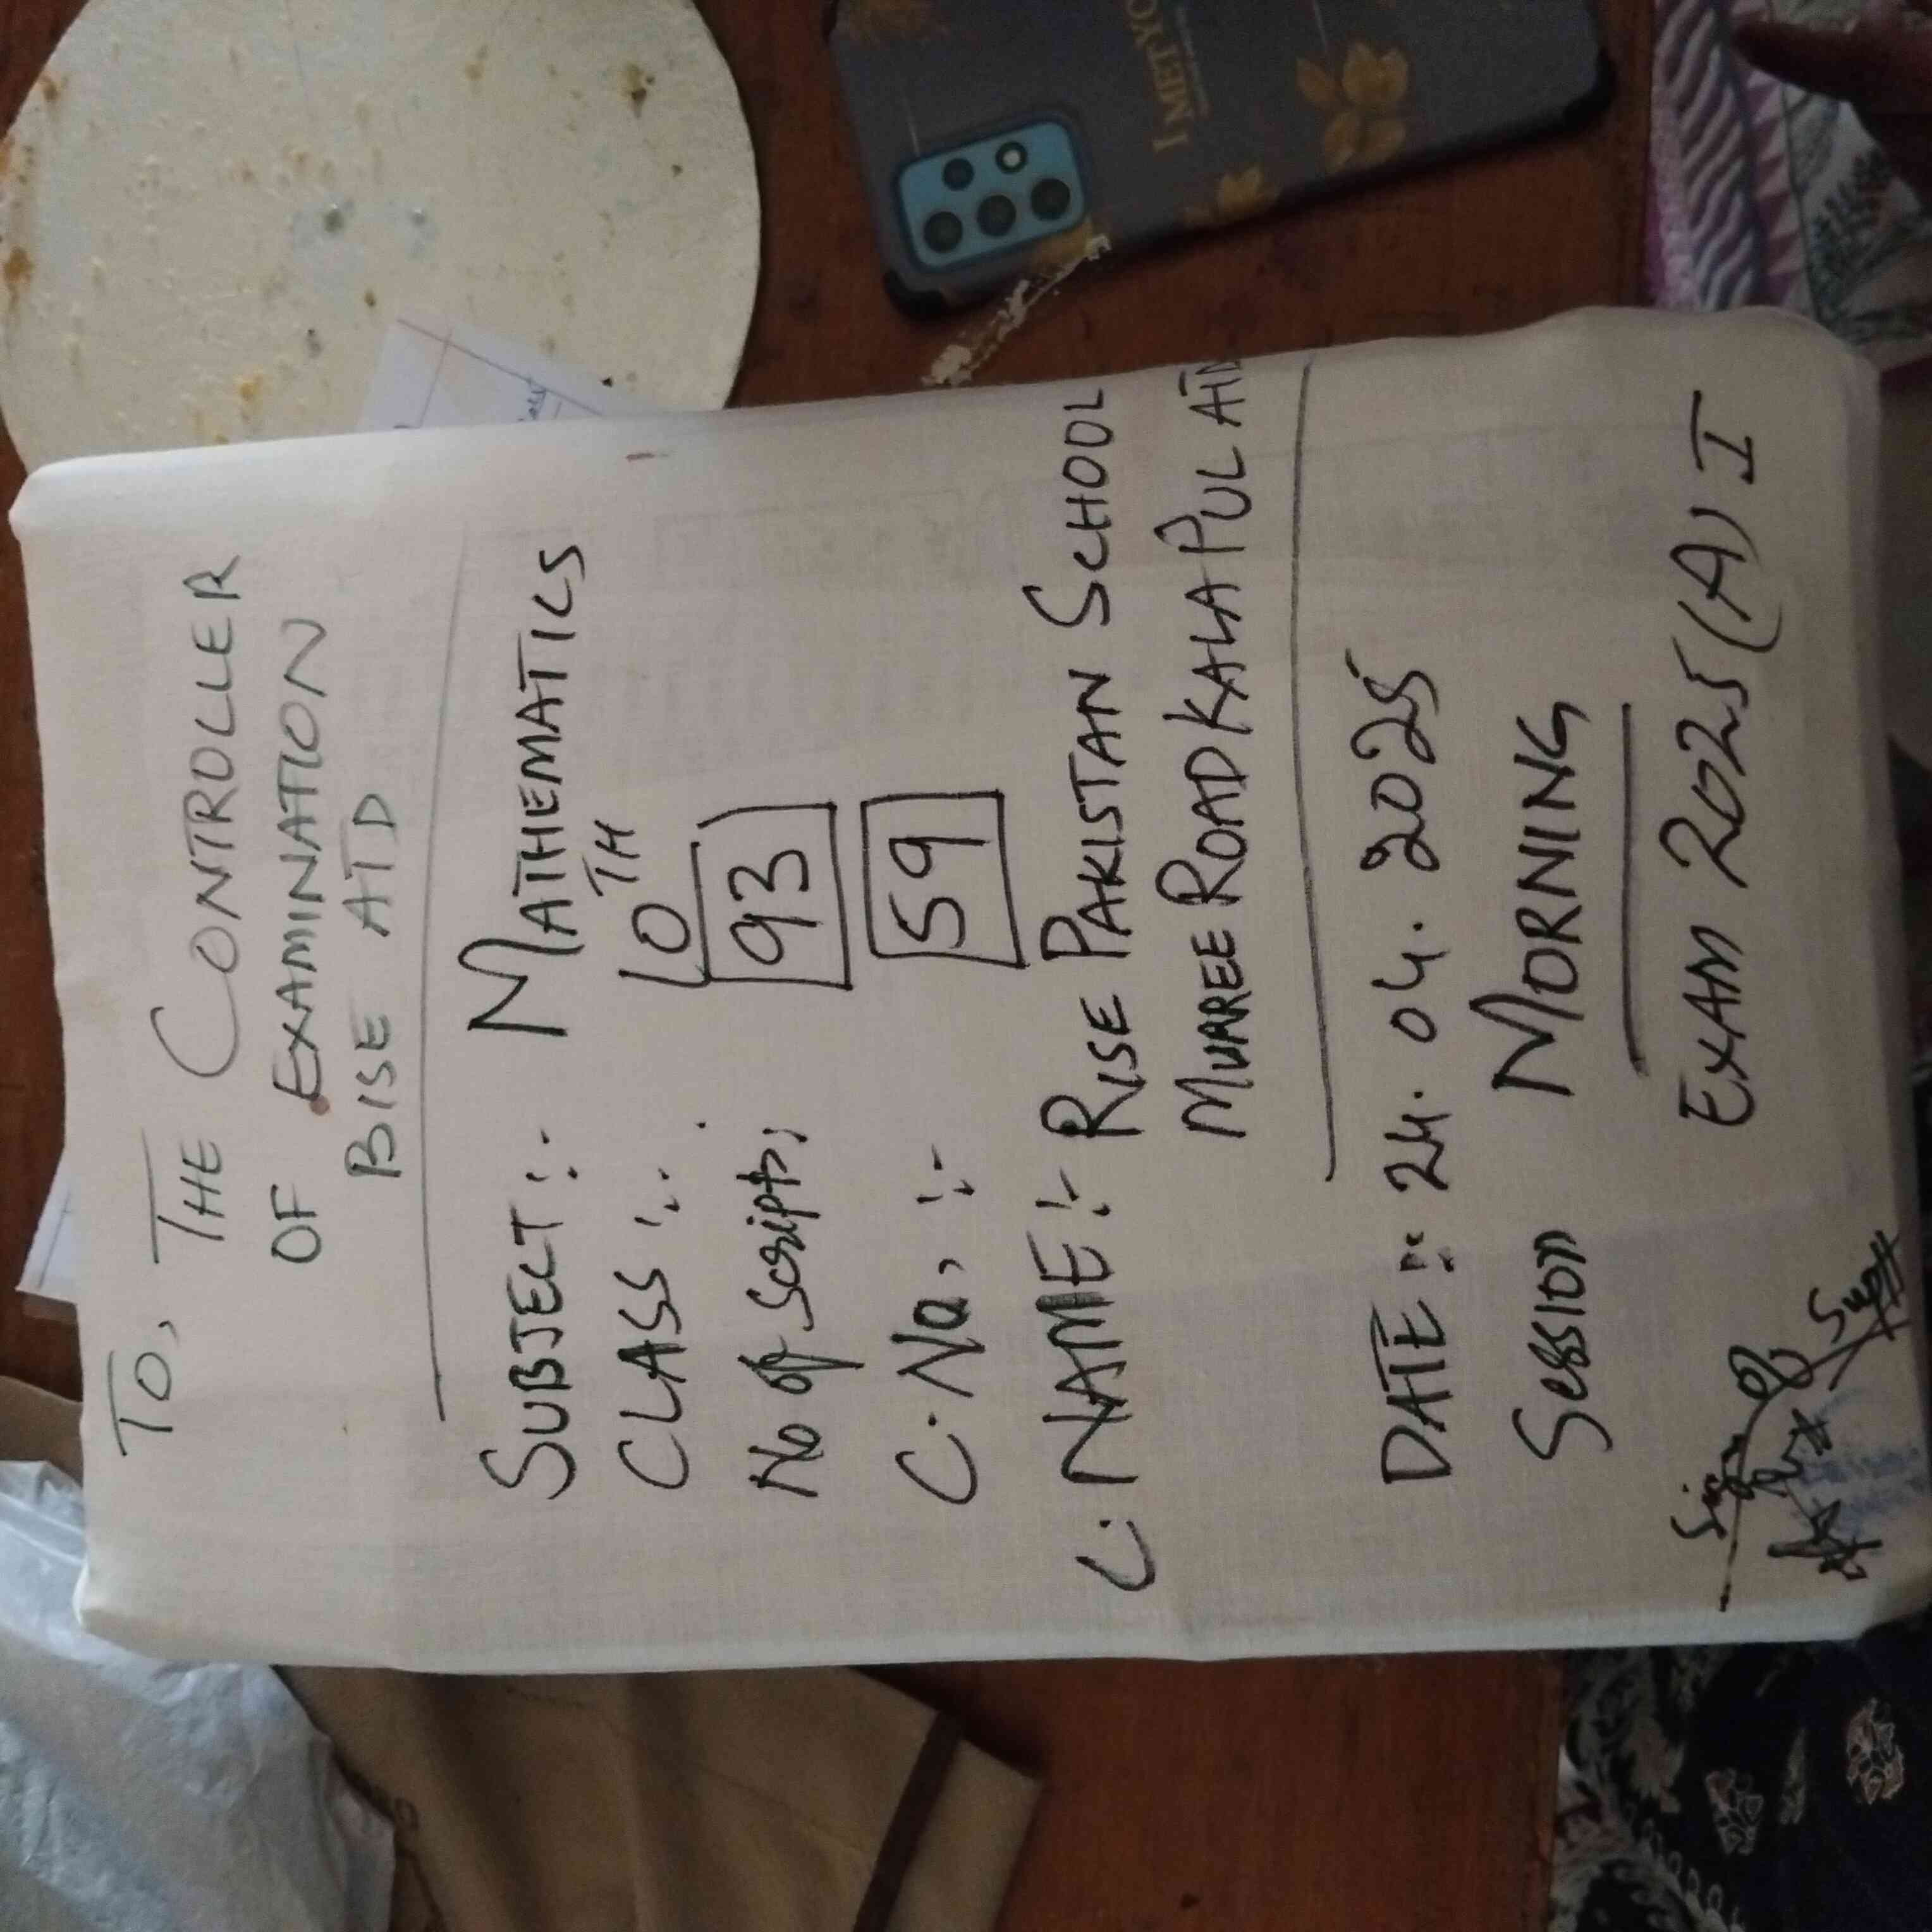 To, THE CONTROLLER
OF EXAMINATION
BISE ATD
SUBJECT :- MATHEMATICS
CLASS :- 10TH
No of Script; 93
C.No, :- 59
C. NAME :- RISE PAKISTAN SCHOOL
MURREE ROAD KALA PUL ATD
DATE :- 24.04.2025
Session MORNING
EXAM 2025 (A) I
Sign of Supdtt
I MET YO